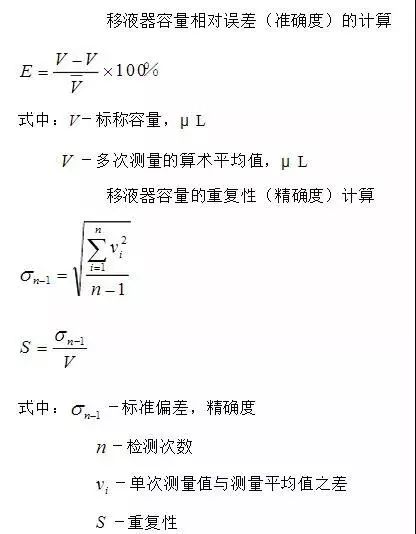 移液器容量相对误差（准确度）的计算
E = (V − V) / V̄ × 100%
式中：V－标称容量，μ L
V －多次测量的算术平均值，μ L
移液器容量的重复性（精确度）计算
σₙ₋₁ = √(∑ᵢ₌₁ⁿ vᵢ² / (n − 1))
S = σₙ₋₁ / V
式中：σₙ₋₁ －标准偏差，精确度
n －检测次数
vᵢ －单次测量值与测量平均值之差
S －重复性